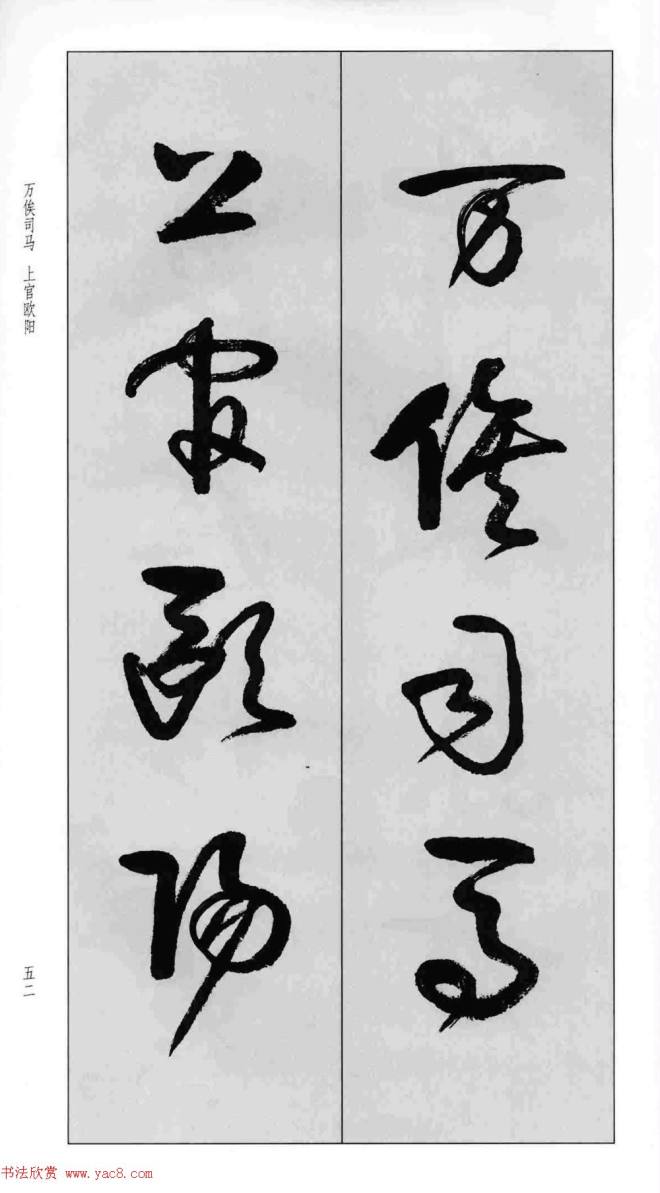 万俟司马
上官欧阳
万俟司马 上官欧阳
五二
书法欣赏 www.yac8.com